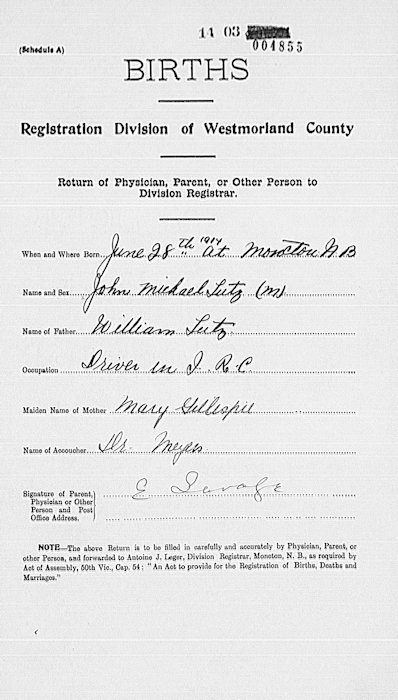 14 03
(Schedule A) 004855
BIRTHS
Registration Division of Westmorland County
Return of Physician, Parent, or Other Person to
Division Registrar.
When and Where Born June 28th 1914 at Moncton N B
Name and Sex John Michael Lutz (M)
Name of Father William Lutz
Occupation Driver in I. R. C
Maiden Name of Mother Mary Gillespie
Name of Accoucher Dr. Myers
Signature of Parent,
Physician or Other
Person and Post
Office Address.
E
NOTE—The above Return is to be filled in carefully and accurately by Physician, Parent, or
other Person, and forwarded to Antoine J. Leger, Division Registrar, Moncton, N. B., as required by
Act of Assembly, 50th Vic., Cap. 54; "An Act to provide for the Registration of Births, Deaths and
Marriages."